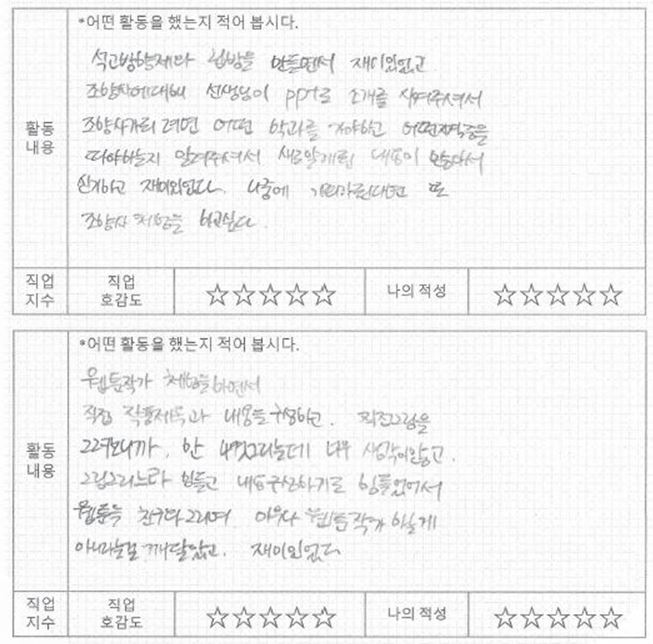 *어떤 활동을 했는지 적어 봅시다.
석고방향제와 향방을 만들면서 재미있었고
조향사에대해 선생님이 ppt로 소개를 시켜주셔서
조향사가 되려면 어떤 학과를 가야하고 어떤자격증을
따야하는지 알려주셔서 새로알게된 내용이 많아서
신기하고 재미있었다. 나중에 기회가된다면 또
조향사 체험을 하고싶다.
활동
내용
직업
지수
직업
호감도
☆☆☆☆☆
나의 적성
☆☆☆☆☆
*어떤 활동을 했는지 적어 봅시다.
웹툰작가 체험을하면서
직접 작품제목과 내용을 구성하고. 직접그림을
그려보니까, 한 4컷그리는데 너무 생각이많고.
그림그리느라 힘들고 내용구상하기도 힘들었어서
웹툰은 친구가그리며 아무나 웹툰작가 하는게
아니라는걸 깨달았고. 재미있었다
활동
내용
직업
지수
직업
호감도
☆☆☆☆☆
나의 적성
☆☆☆☆☆